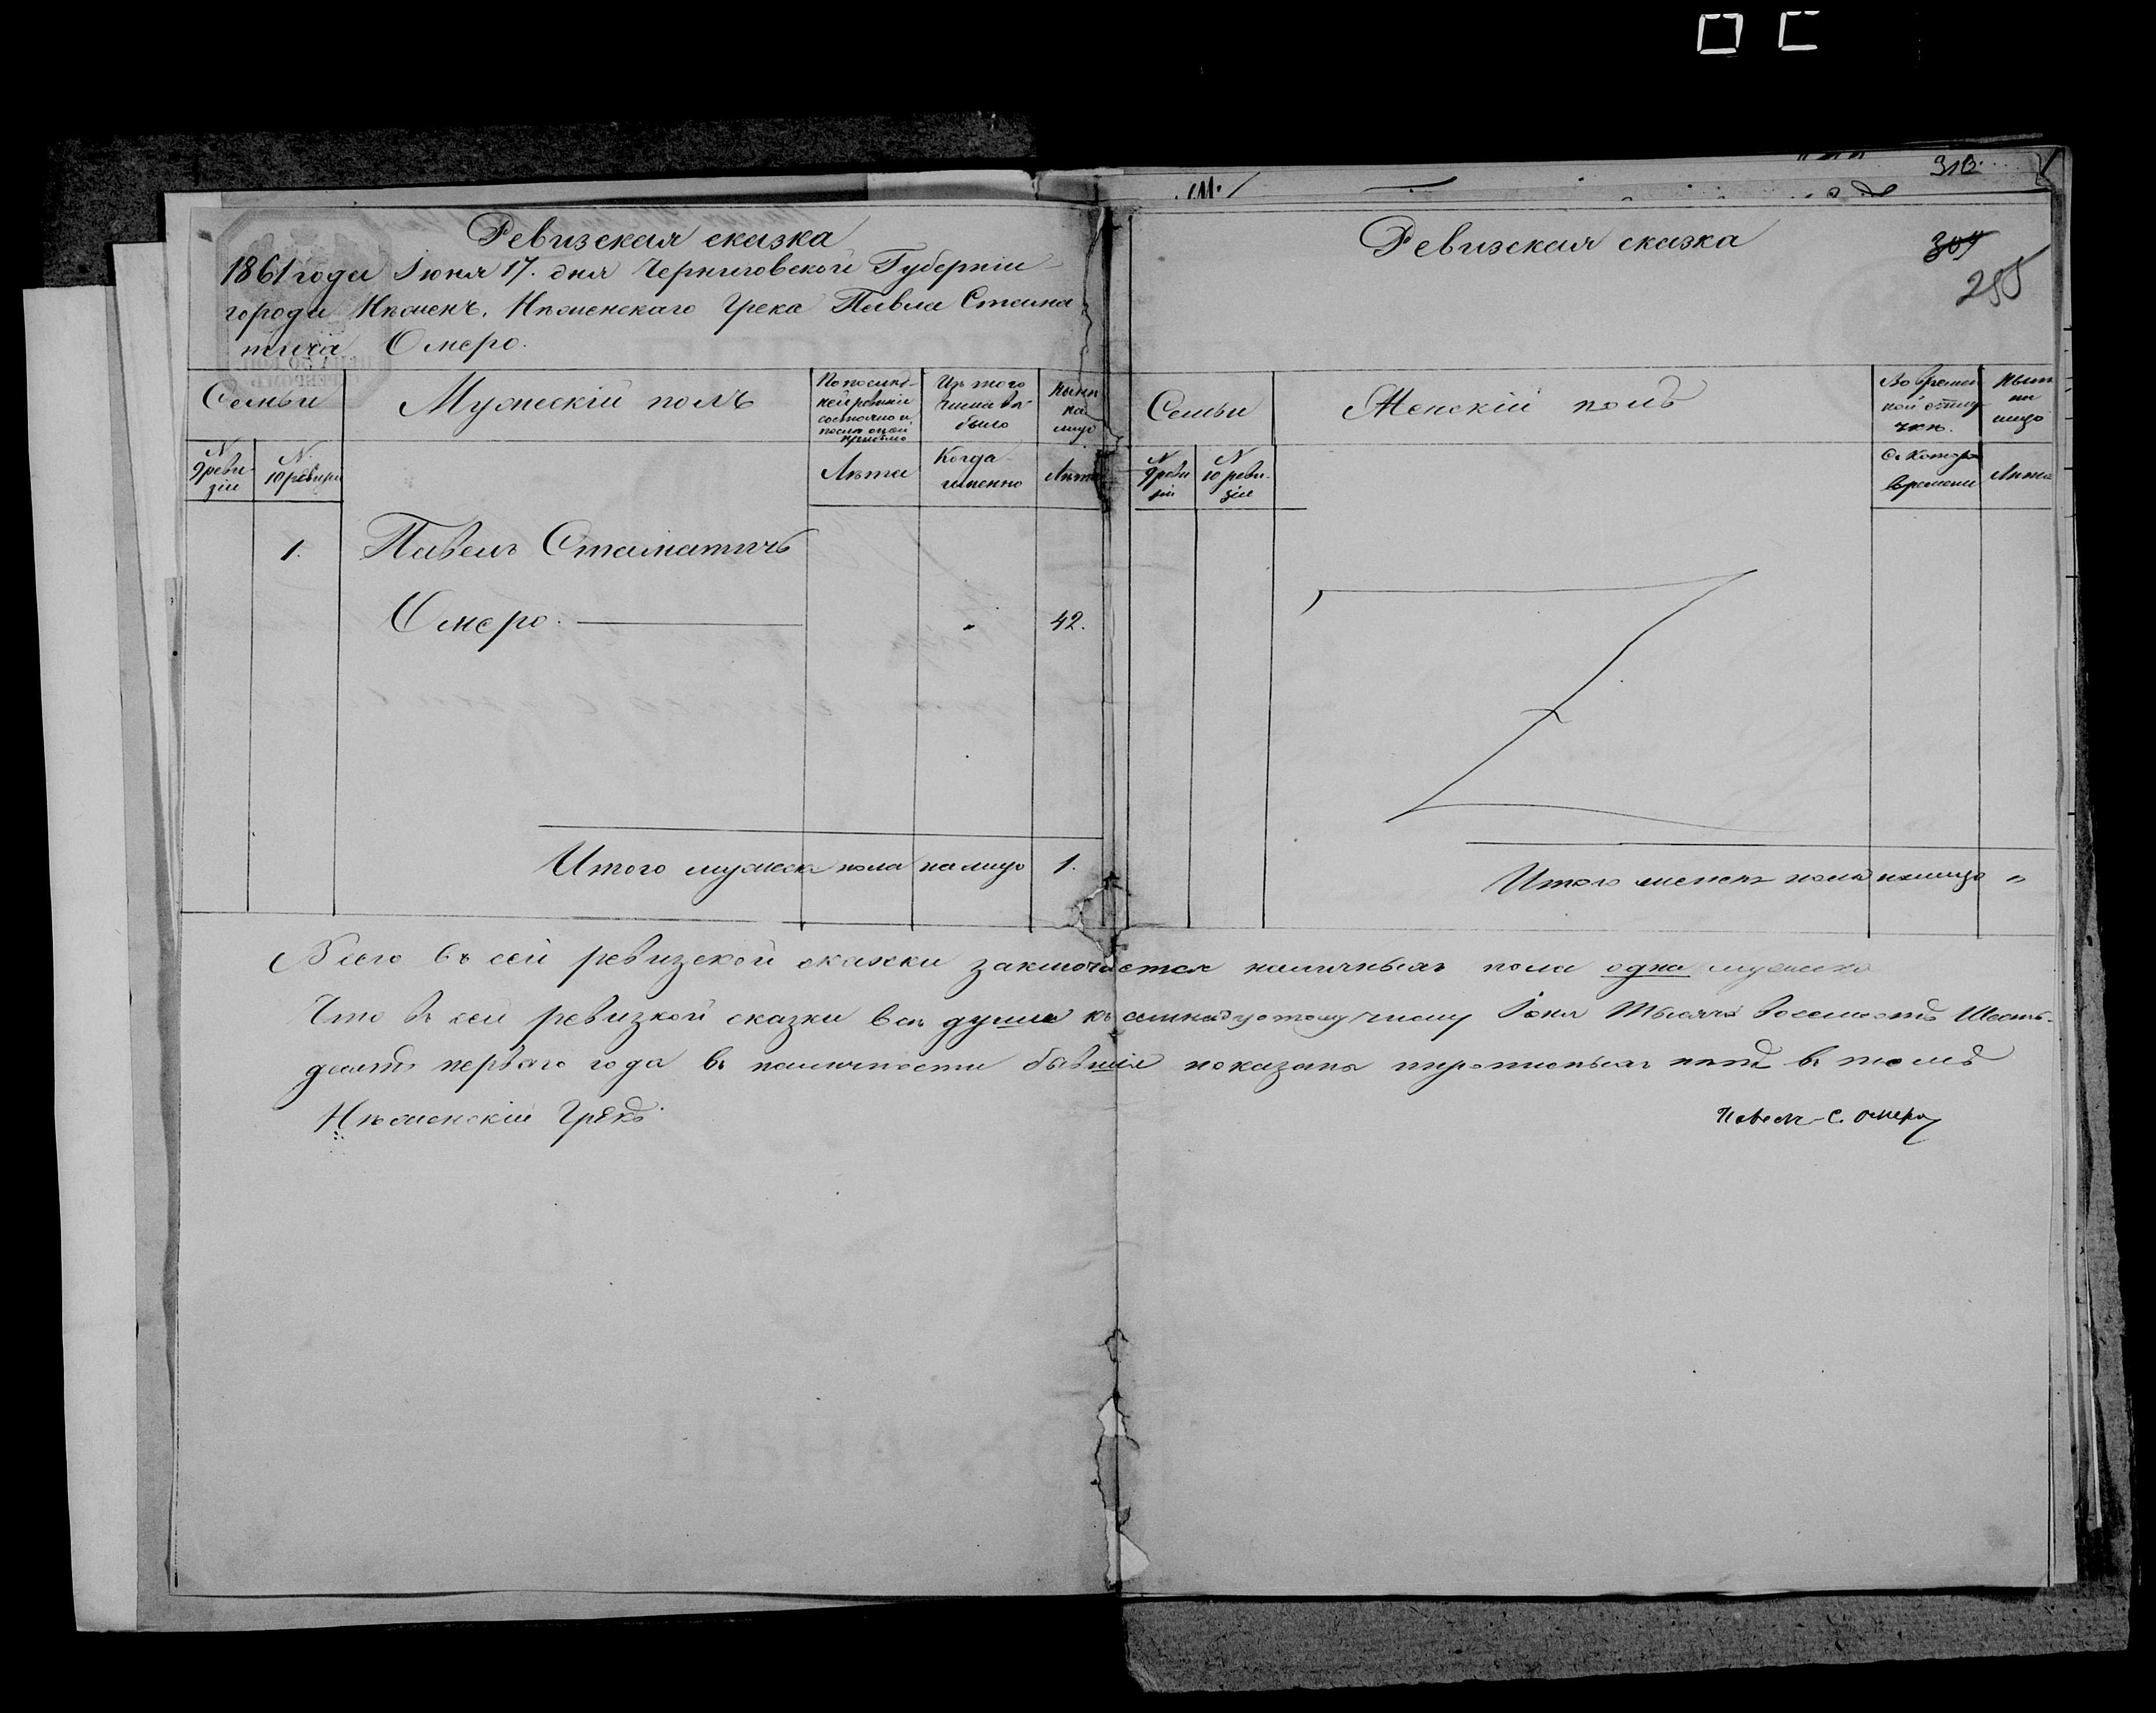 310
Ревизская сказка
1861 года Iюня 17. дня Черниговской Губернiи
города Нѣжина, Нѣженскаго Грека Павла Стама
тича Омеро.
Семьи
Мужескiй полъ
По послѣд-
ней ревизiи
состояло и
послѣ оной
прибыло
Изъ того
числа вы-
было
Нынѣ
на
лицо
N
9 реви-
зiи
N
10 ревизiи
Лѣта
Когда
именно
Лѣта
1. Павелъ Стаматичъ
Омеро. 42.
Итого мужеска пола на лицо 1.
Ревизская сказка
309
255
Семьи
Женскiй полъ
Во времен
ной отлу
чкѣ.
Нынѣ
на
лицо
N
9 реви
зiи
N
10 реви-
зiи
Съ котора
времени
Лѣта
Итого женска пола налицо "
Всего въ сей ревизской сказки заключается наличныхъ пола одна мужеска
Что въ сей ревизкой сказки всѣ души къ семнадцатому числу Iюня Тысяча восемьсотъ Шесть-
десятъ перваго года въ наличности бывшiя показаны и прописныхъ нѣтъ въ томъ
Нѣженскiй Грекъ
Павелъ С. Омеро